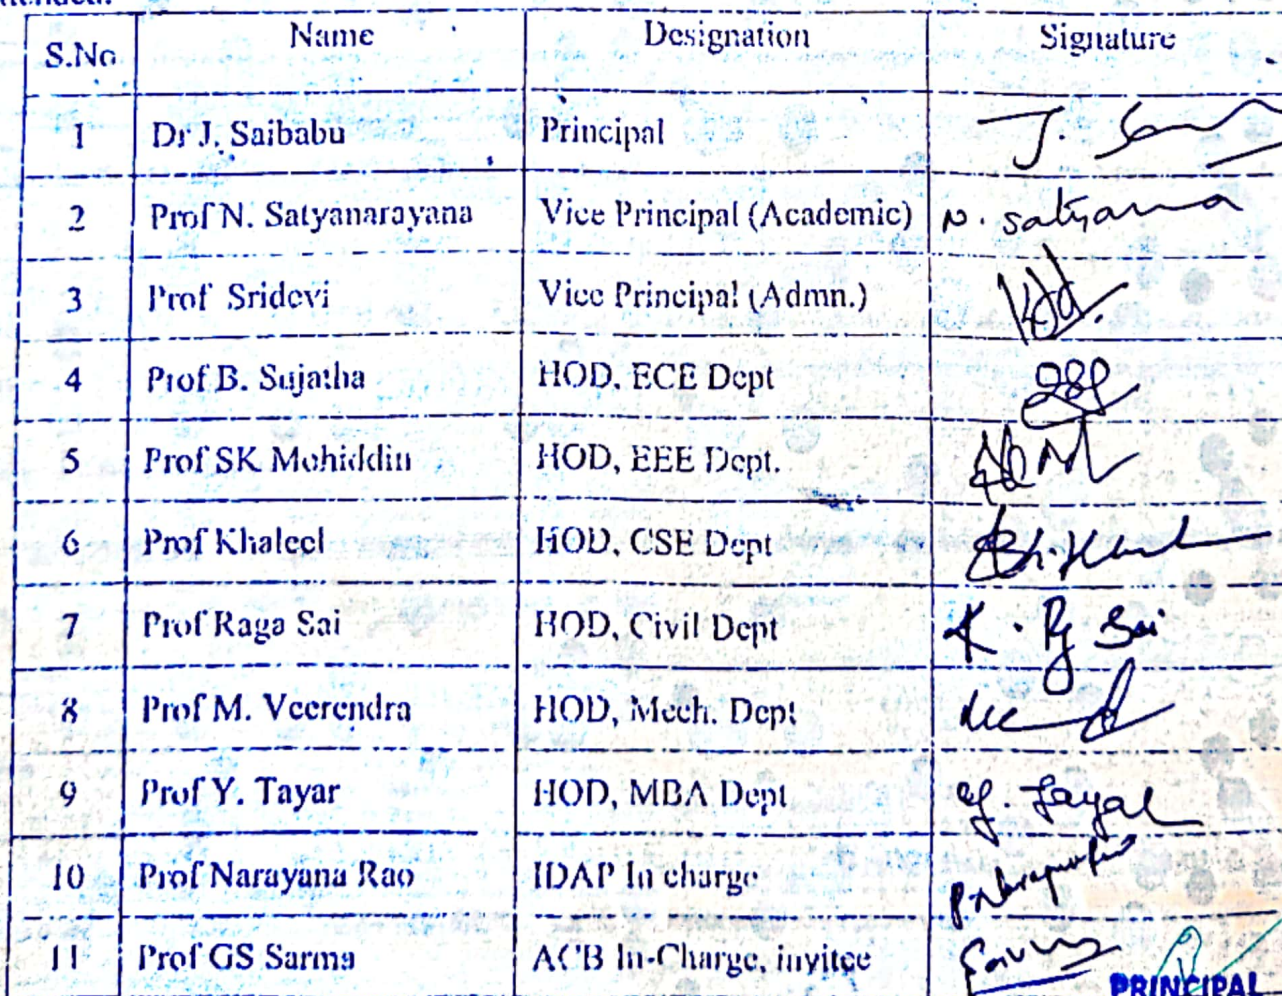 S.No Name Designation Signature
1 Dr J. Saibabu Principal J.
2 Prof N. Satyanarayana Vice Principal (Academic) N. Satyana
3 Prof Sridevi Vice Principal (Admn.)
4 Prof B. Sujatha HOD, ECE Dept
5 Prof SK Mohiddin HOD, EEE Dept.
6 Prof Khaleel HOD, CSE Dept
7 Prof Raga Sai HOD, Civil Dept K. Rg Sai
8 Prof M. Veerendra HOD, Mech. Dept
9 Prof Y. Tayar HOD, MBA Dept Y. Tayar
10 Prof Narayana Rao IDAP In charge
11 Prof GS Sarma ACB In-Charge, invitee
PRINCIPAL